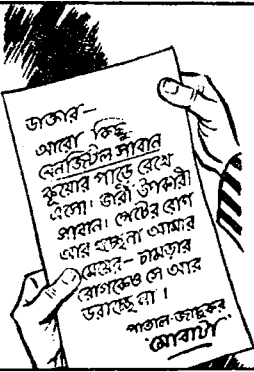 ডাক্তার—
আরো কিছু
হেনজিটল সাবান
কুয়োর পাড়ে রেখে
এসো। ভারী উপকারী
সাবান। পেটের রোগ
আর হচ্ছে না আমার
মেয়ের— চামড়ার
রোগকেও সে আর
ডরাচ্ছে না।
পাতাল-জাদুকর
মোবাটা